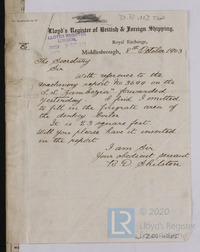 Lloyd's Register of British & Foreign Shipping,
Royal Exchange,
Middlesborough, 8th October 1903
The Secretary
Sir
With reference to the
machinery report No 3649 on the
S.S. "Zambezia" forwarded
yesterday I find I omitted
to fill in the firegrate area of
the donkey boiler
It is 23 square feet.
Will you please have it inserted
in the report
I am Sir
Your obedient servant
© 2020
Lloyd's Register